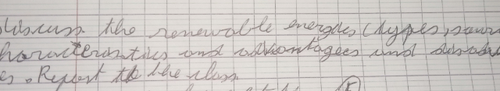 Discuss the renewable energies (types, sour
characteristics and advantages and disadv
es. Report to the class